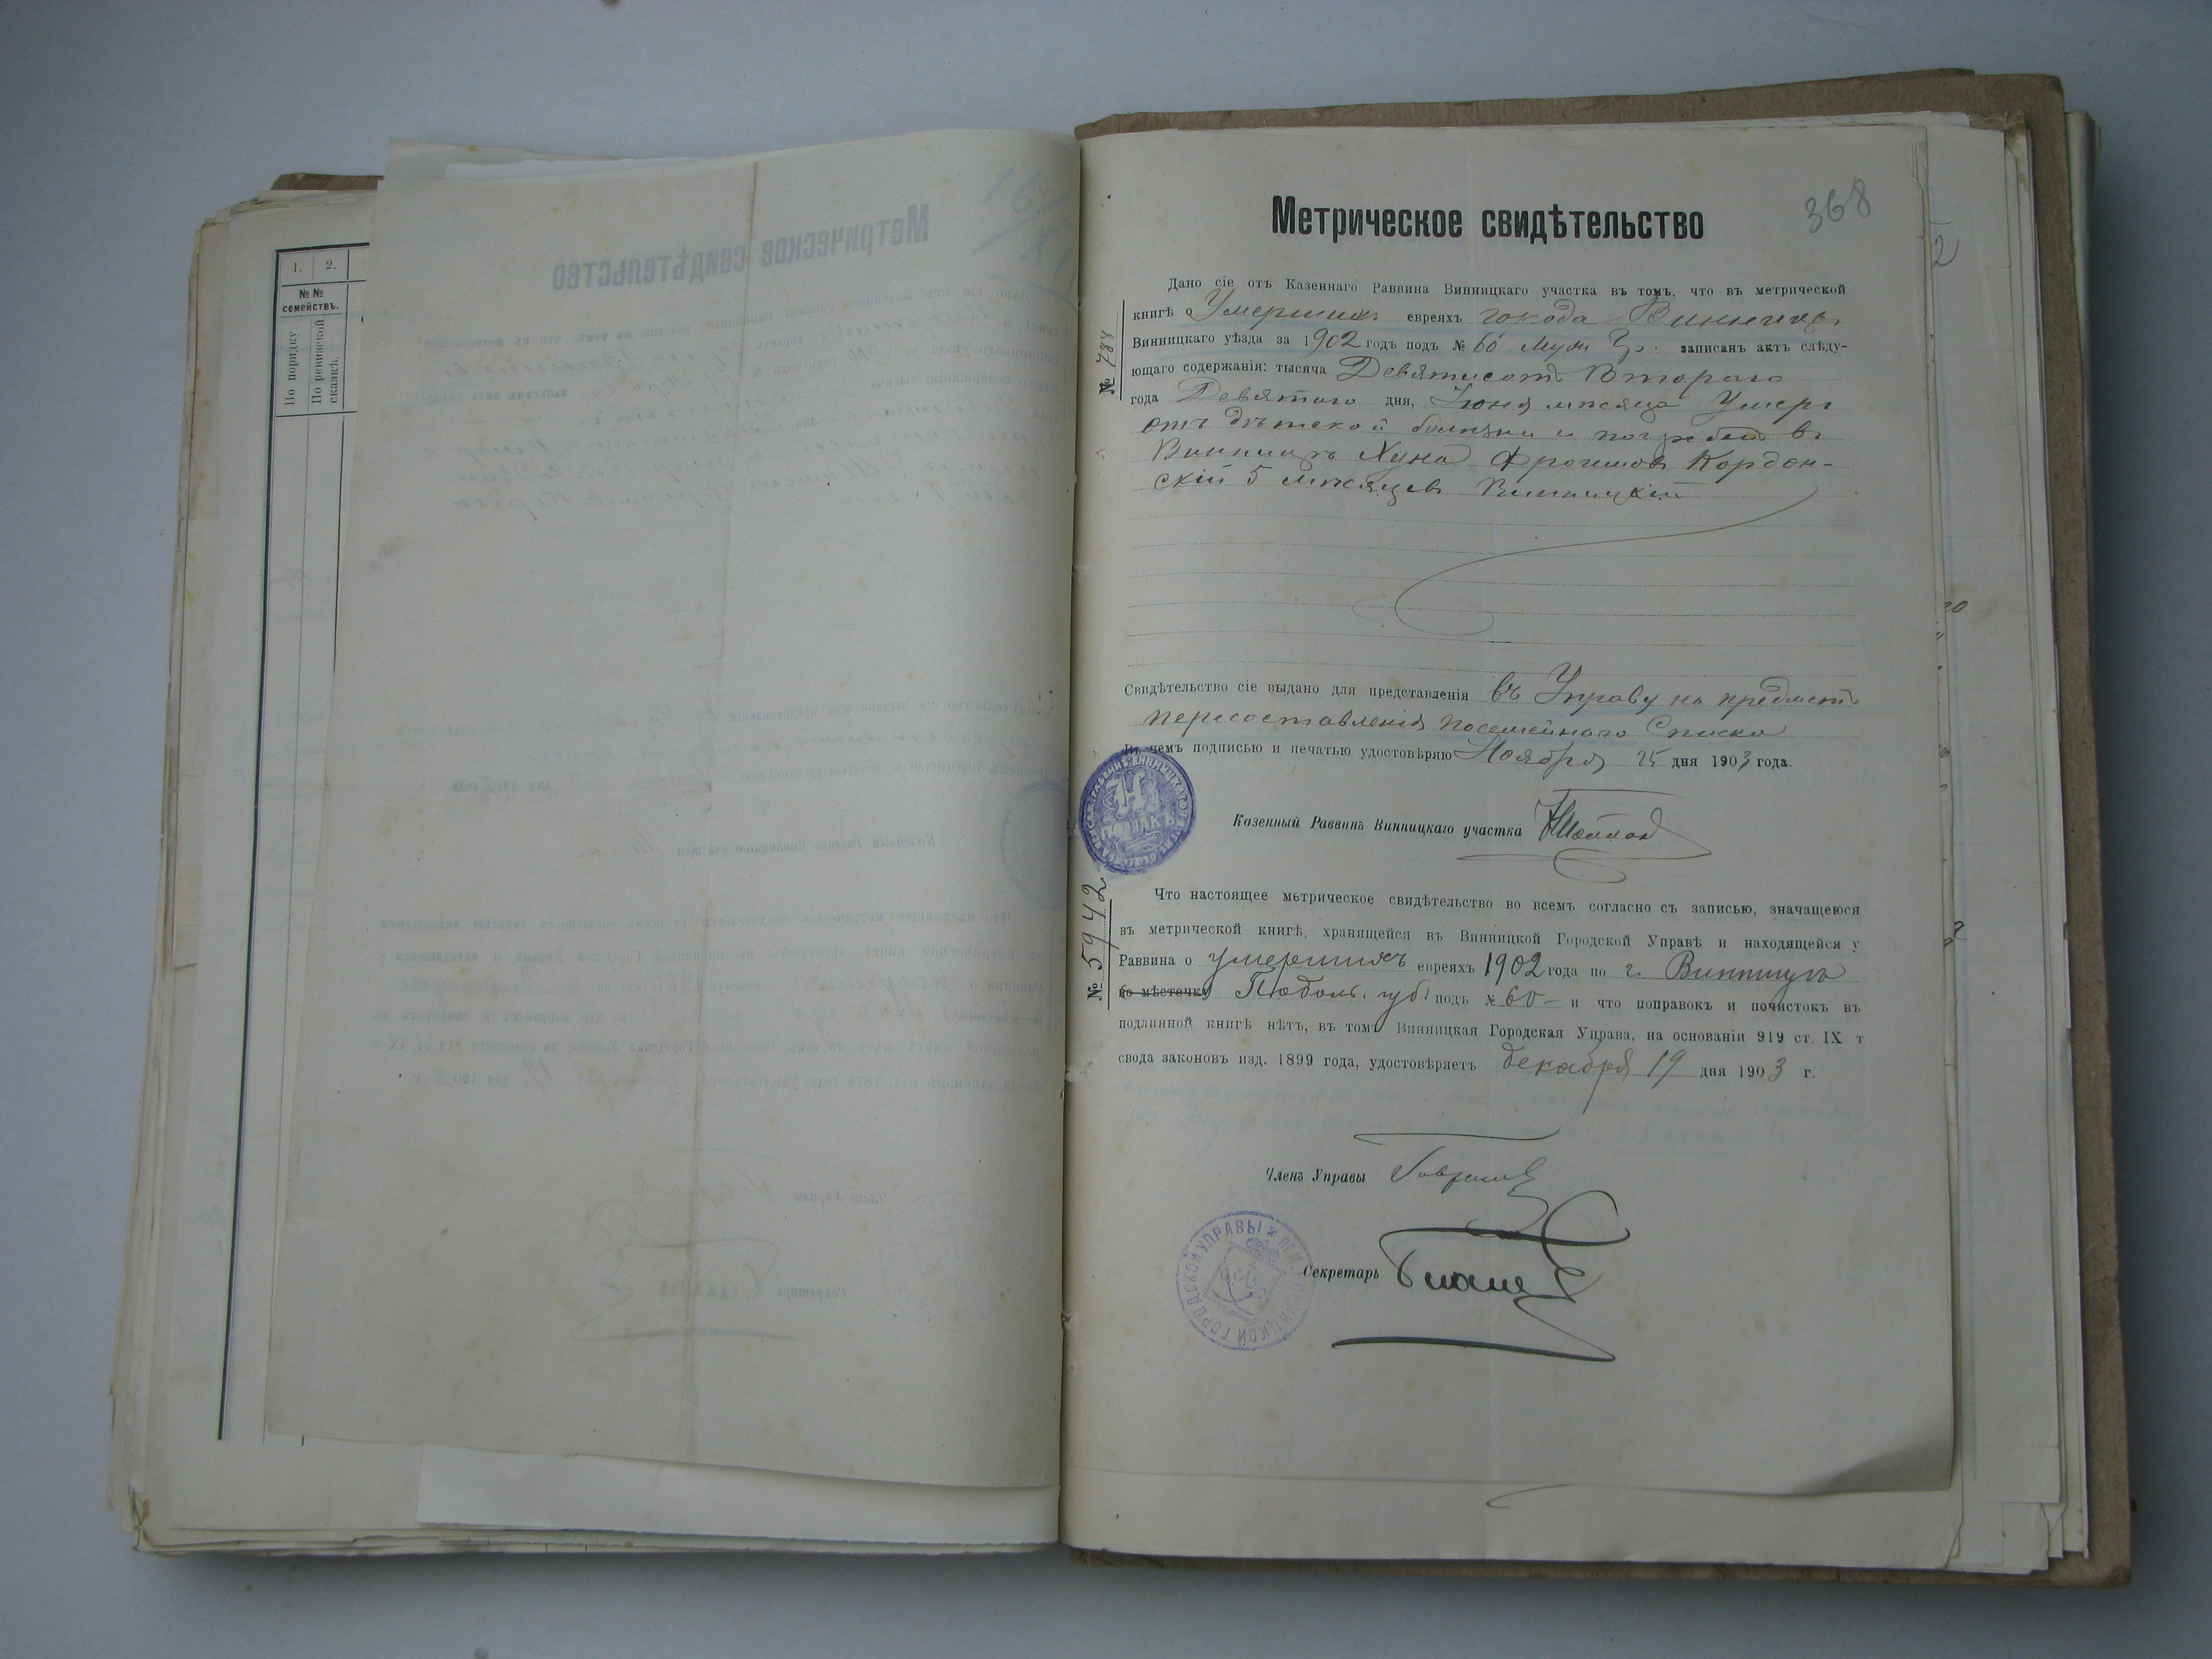 1. 2.
№№
семействъ.
По порядку.
По ревизской
сказкѣ.
368
Метрическое свидѣтельство
№ 788
Дано сіе отъ Казеннаго Раввина Винницкаго участка въ томъ, что въ метрической
книгѣ о Умершихъ евреяхъ города Винницы
Винницкаго уѣзда за 1902 годъ подъ № 60 Муж. записанъ актъ слѣду-
ющаго содержанія: тысяча Девятисотъ Второго
года Девятаго дня, Іюня мѣсяца Умеръ
отъ дѣтской болѣзни и погребенъ въ
Винницѣ Хуна Фроимовъ Кордон-
скій 5 мѣсяцевъ Винницкій
Свидѣтельство сіе выдано для представленія въ Управу на предметъ
пересоставленія посемейнаго Списка
Въ чемъ подписью и печатью удостовѣряю Ноября 25 дня 1903 года.
Казенный Раввинъ Винницкаго участка
№ 5942
Что настоящее метрическое свидѣтельство во всемъ согласно съ записью, значащеюся
въ метрической книгѣ, хранящейся въ Винницкой Городской Управѣ и находящейся у
Раввина о умершихъ евреяхъ 1902 года по г. Винницѣ
по мѣстечку Подол. губ. подъ № 60 — и что поправокъ и почистокъ въ
подлинной книгѣ нѣтъ, въ томъ Винницкая Городская Управа, на основаніи 919 ст. IX т
свода законовъ изд. 1899 года, удостовѣряетъ декабря 19 дня 1903 г.
Членъ Управы
Секретарь
ГОРОДСКОЙ УПРАВЫ